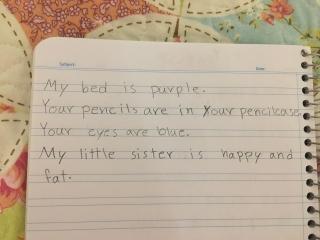 Subject:
Date:
My bed is purple.
Your pencils are in your pencilcase.
Your eyes are blue.
My little sister is happy and
fat.